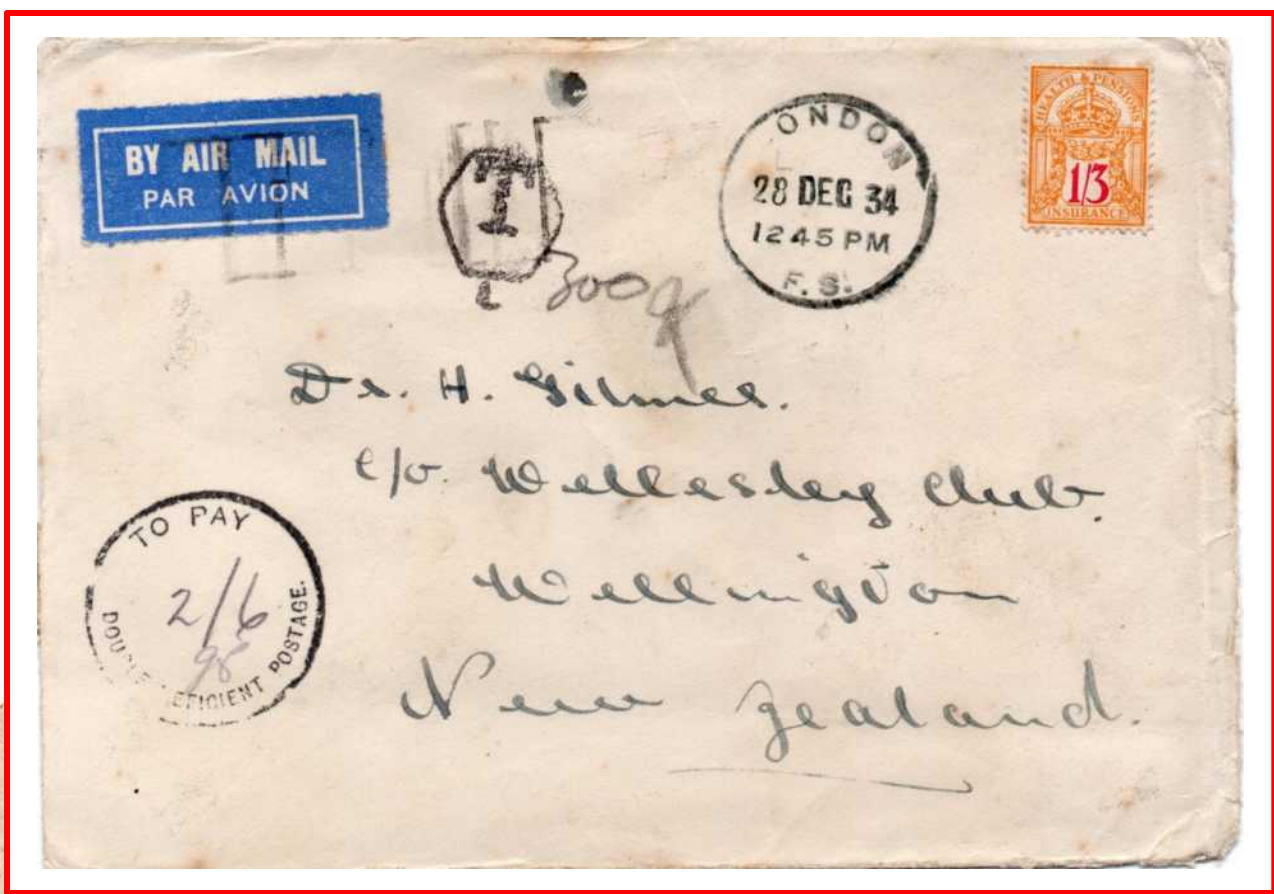 BY AIR MAIL
PAR AVION
T
L
300
ONDON
28 DEC 34
12 45 PM
F. S.
HEALTH & PENSIONS
1/3
INSURANCE
Dr. H. Gilmer.
c/o. Wellesley Club.
Wellington
New Zealand.
TO PAY
2/6
DEFICIENT POSTAGE.